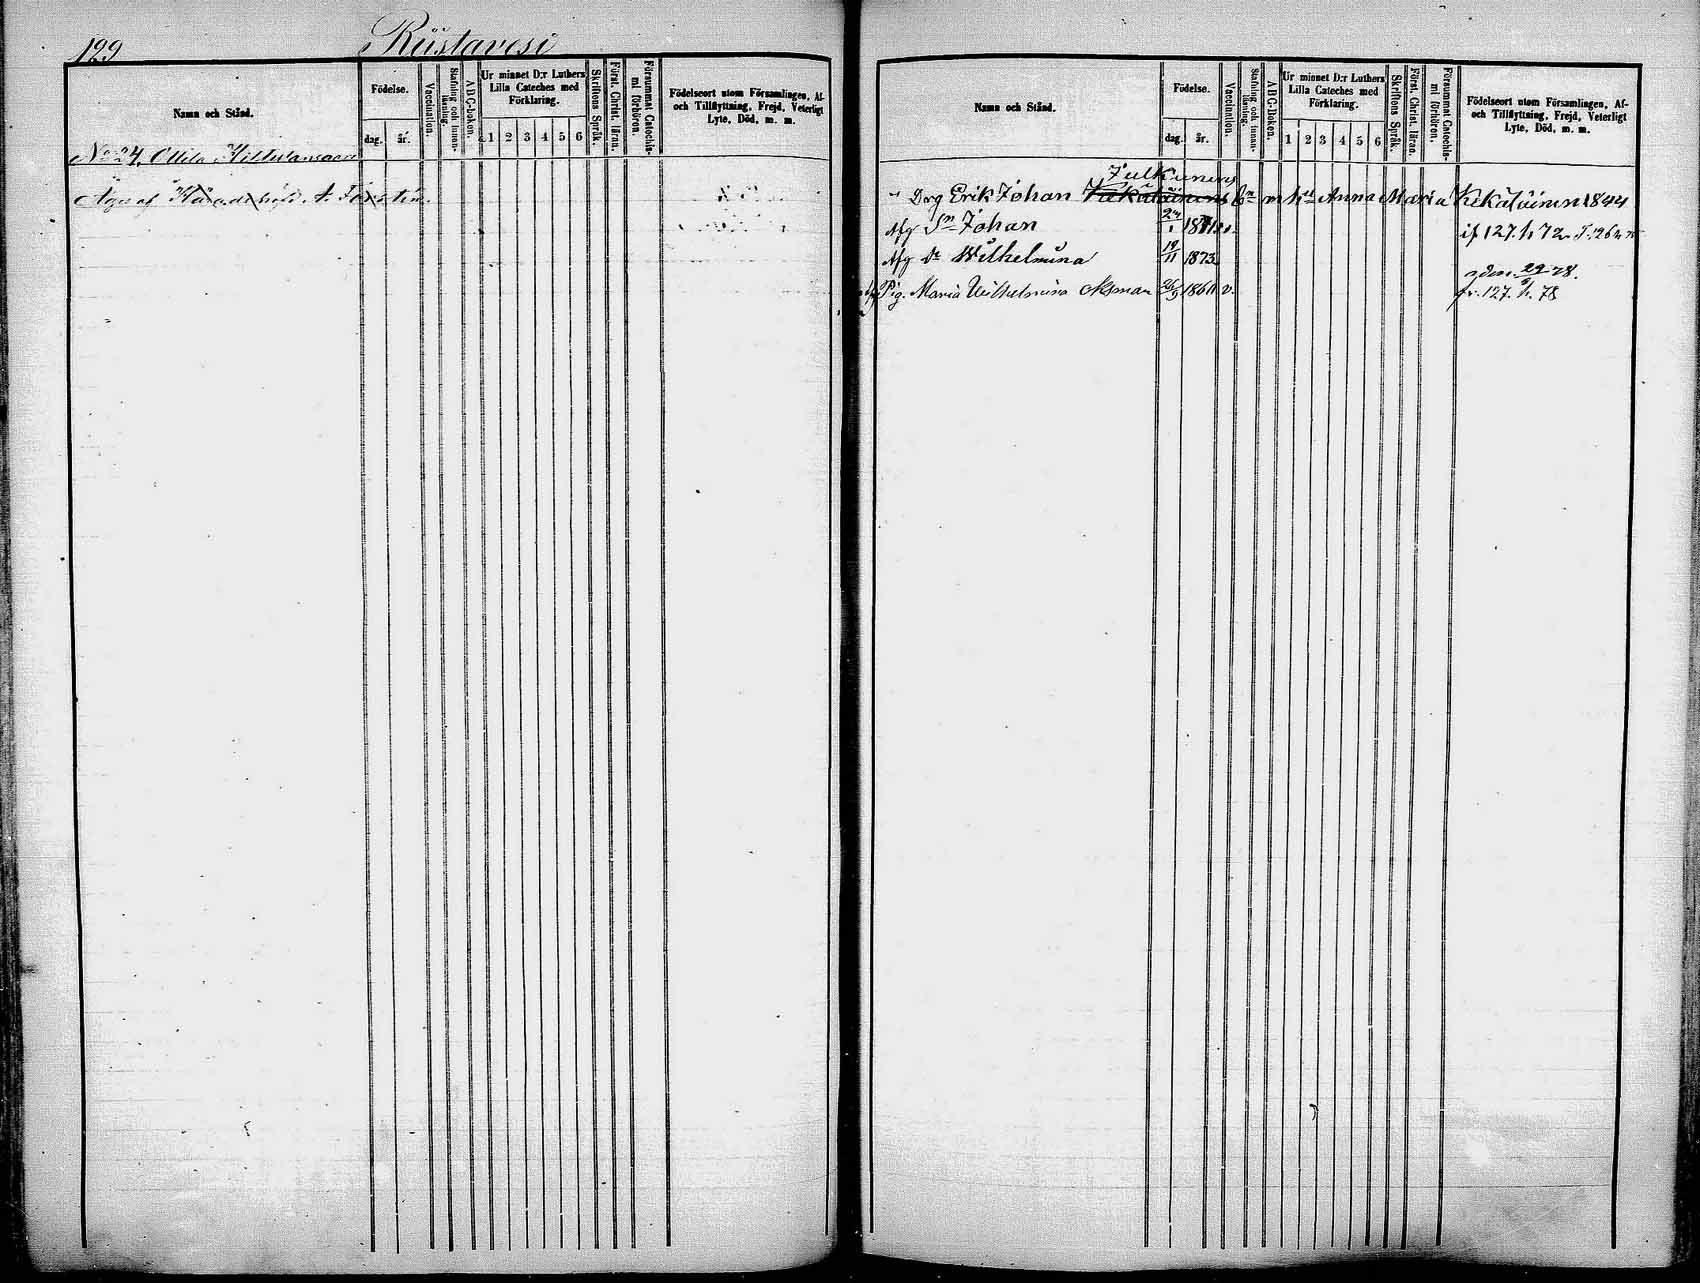 129
Riistavesi
Namn och Stånd.
Födelse.
dag.
år.
Vaccination.
Stafning och innan-
läsning.
A B C-boken.
Ur minnet D:r Luthers
Lilla Cateches med
Förklaring.
1 2 3 4 5 6
Skriftens Språk.
Först. Christ. läran.
Försummat Catechis-
mi förhören.
Födelseort utom Församlingen, Af-
och Tillflyttning, Frejd, Veterligt
Lyte, Död, m. m.
No 24, Ollila
Äga af Häradshöfd A. Forstén
Namn och Stånd.
Födelse.
dag.
år.
Vaccination.
Stafning och innan-
läsning.
A B C-boken.
Ur minnet D:r Luthers
Lilla Cateches med
Förklaring.
1 2 3 4 5 6
Skriftens Språk.
Först. Christ. läran.
Försummat Catechis-
mi förhören.
Födelseort utom Församlingen, Af-
och Tillflyttning, Frejd, Veterligt
Lyte, Död, m. m.
Julkunens
Drg Erik Johan m hu Anna Maria Kekäläinen 1844
Afg Sn Johan 1871 v. if 127. h 72
Afg Dr Wilhelmina 19/11 1873
Pig. Maria Wilhelmina Aksman 26/9 1860 v. fr. 127. h. 78